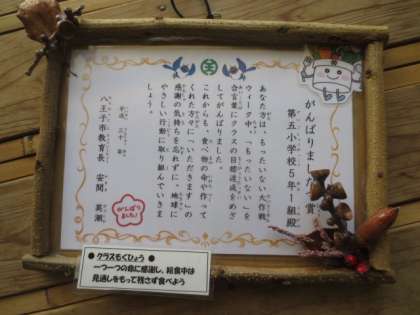 がんばりました賞
第五小学校5年1組殿
あなた方は、もったいない大作戦
ウィーク中、「もったいない」を
合言葉にクラスの目標達成をめざ
してがんばりました。
これからも、食べ物の命や作って
くれた方々に「いただきます」の
感謝の気持ちを忘れずに、地球に
やさしい行動に取り組んでいきま
しょう。
平成三十年
八王子市教育長 安間 英潮
がんばり
ました!
● クラスもくひょう ●
一つ一つの命に感謝し、給食中は
見通しをもって残さず食べよう